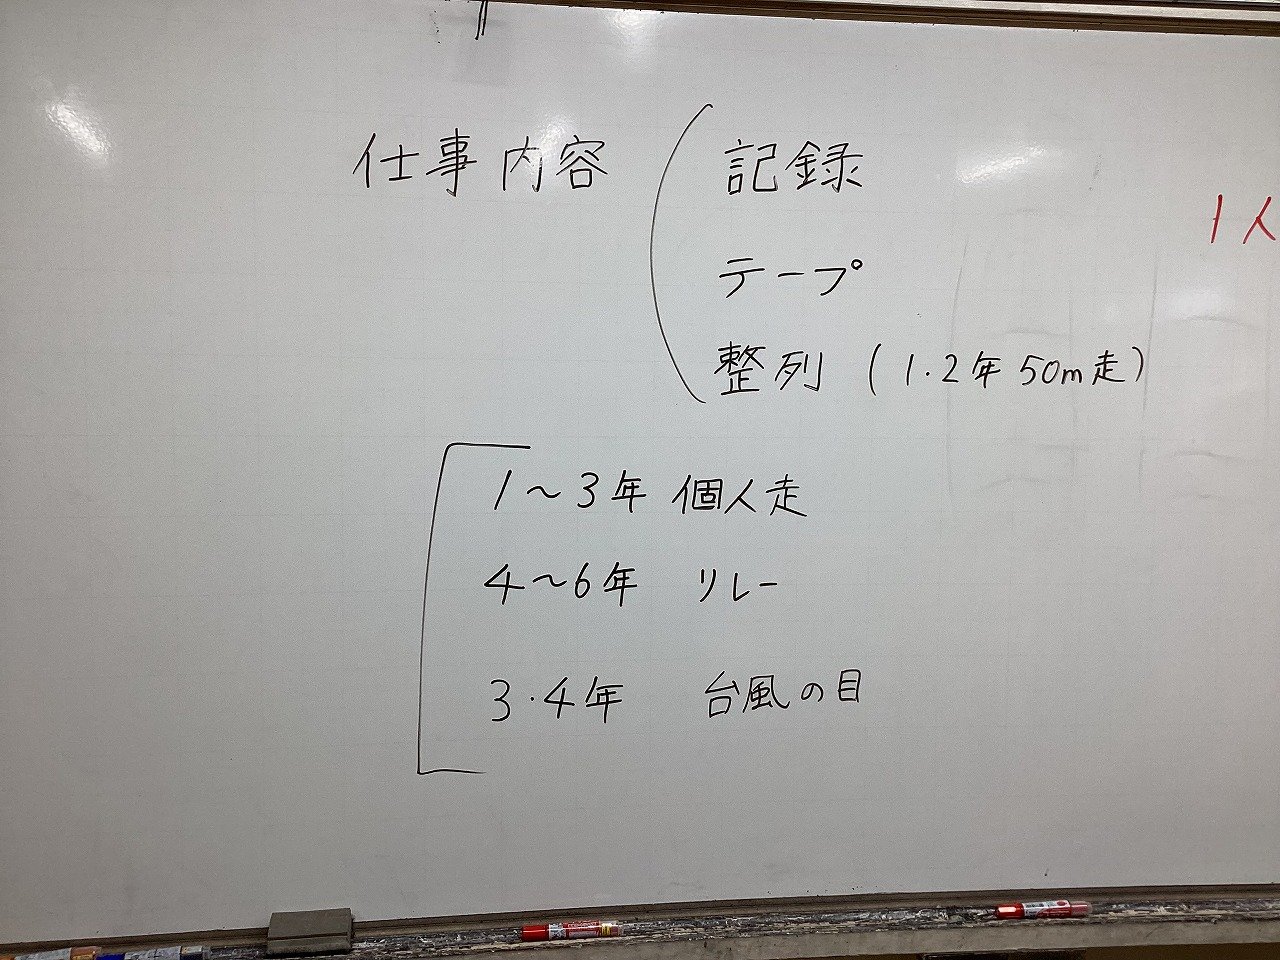 仕事内容
記録
テープ
整列 (1.2年 50m走)
1人
1〜3年 個人走
4〜6年 リレー
3.4年 台風の目